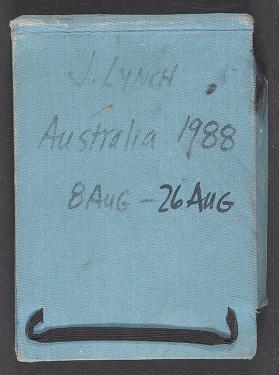 J. LYNCH
Australia 1988
8 AUG - 26 AUG